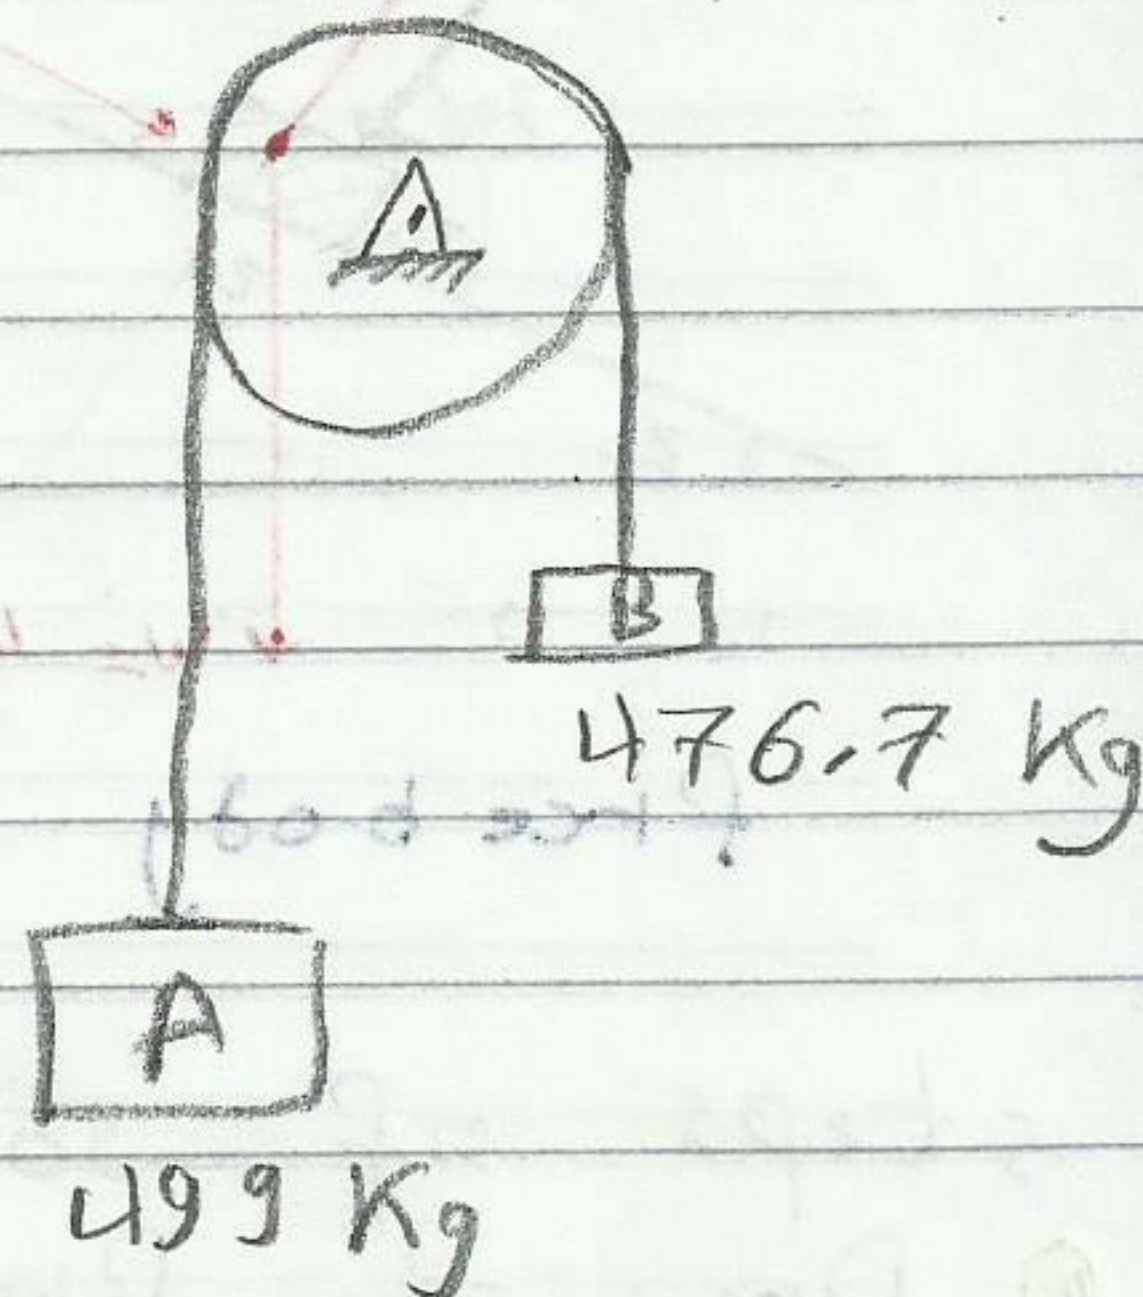 B
476.7 Kg
A
499 Kg